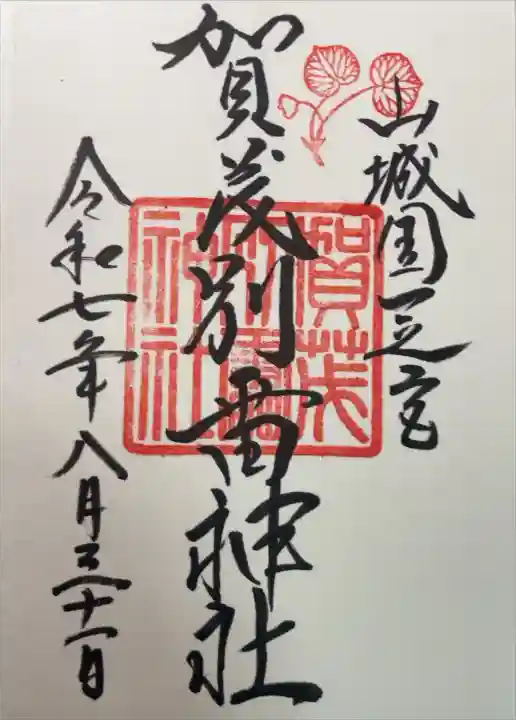 山城国一之宮
賀茂別雷神社
賀茂別雷神社
令和七年八月三十一日